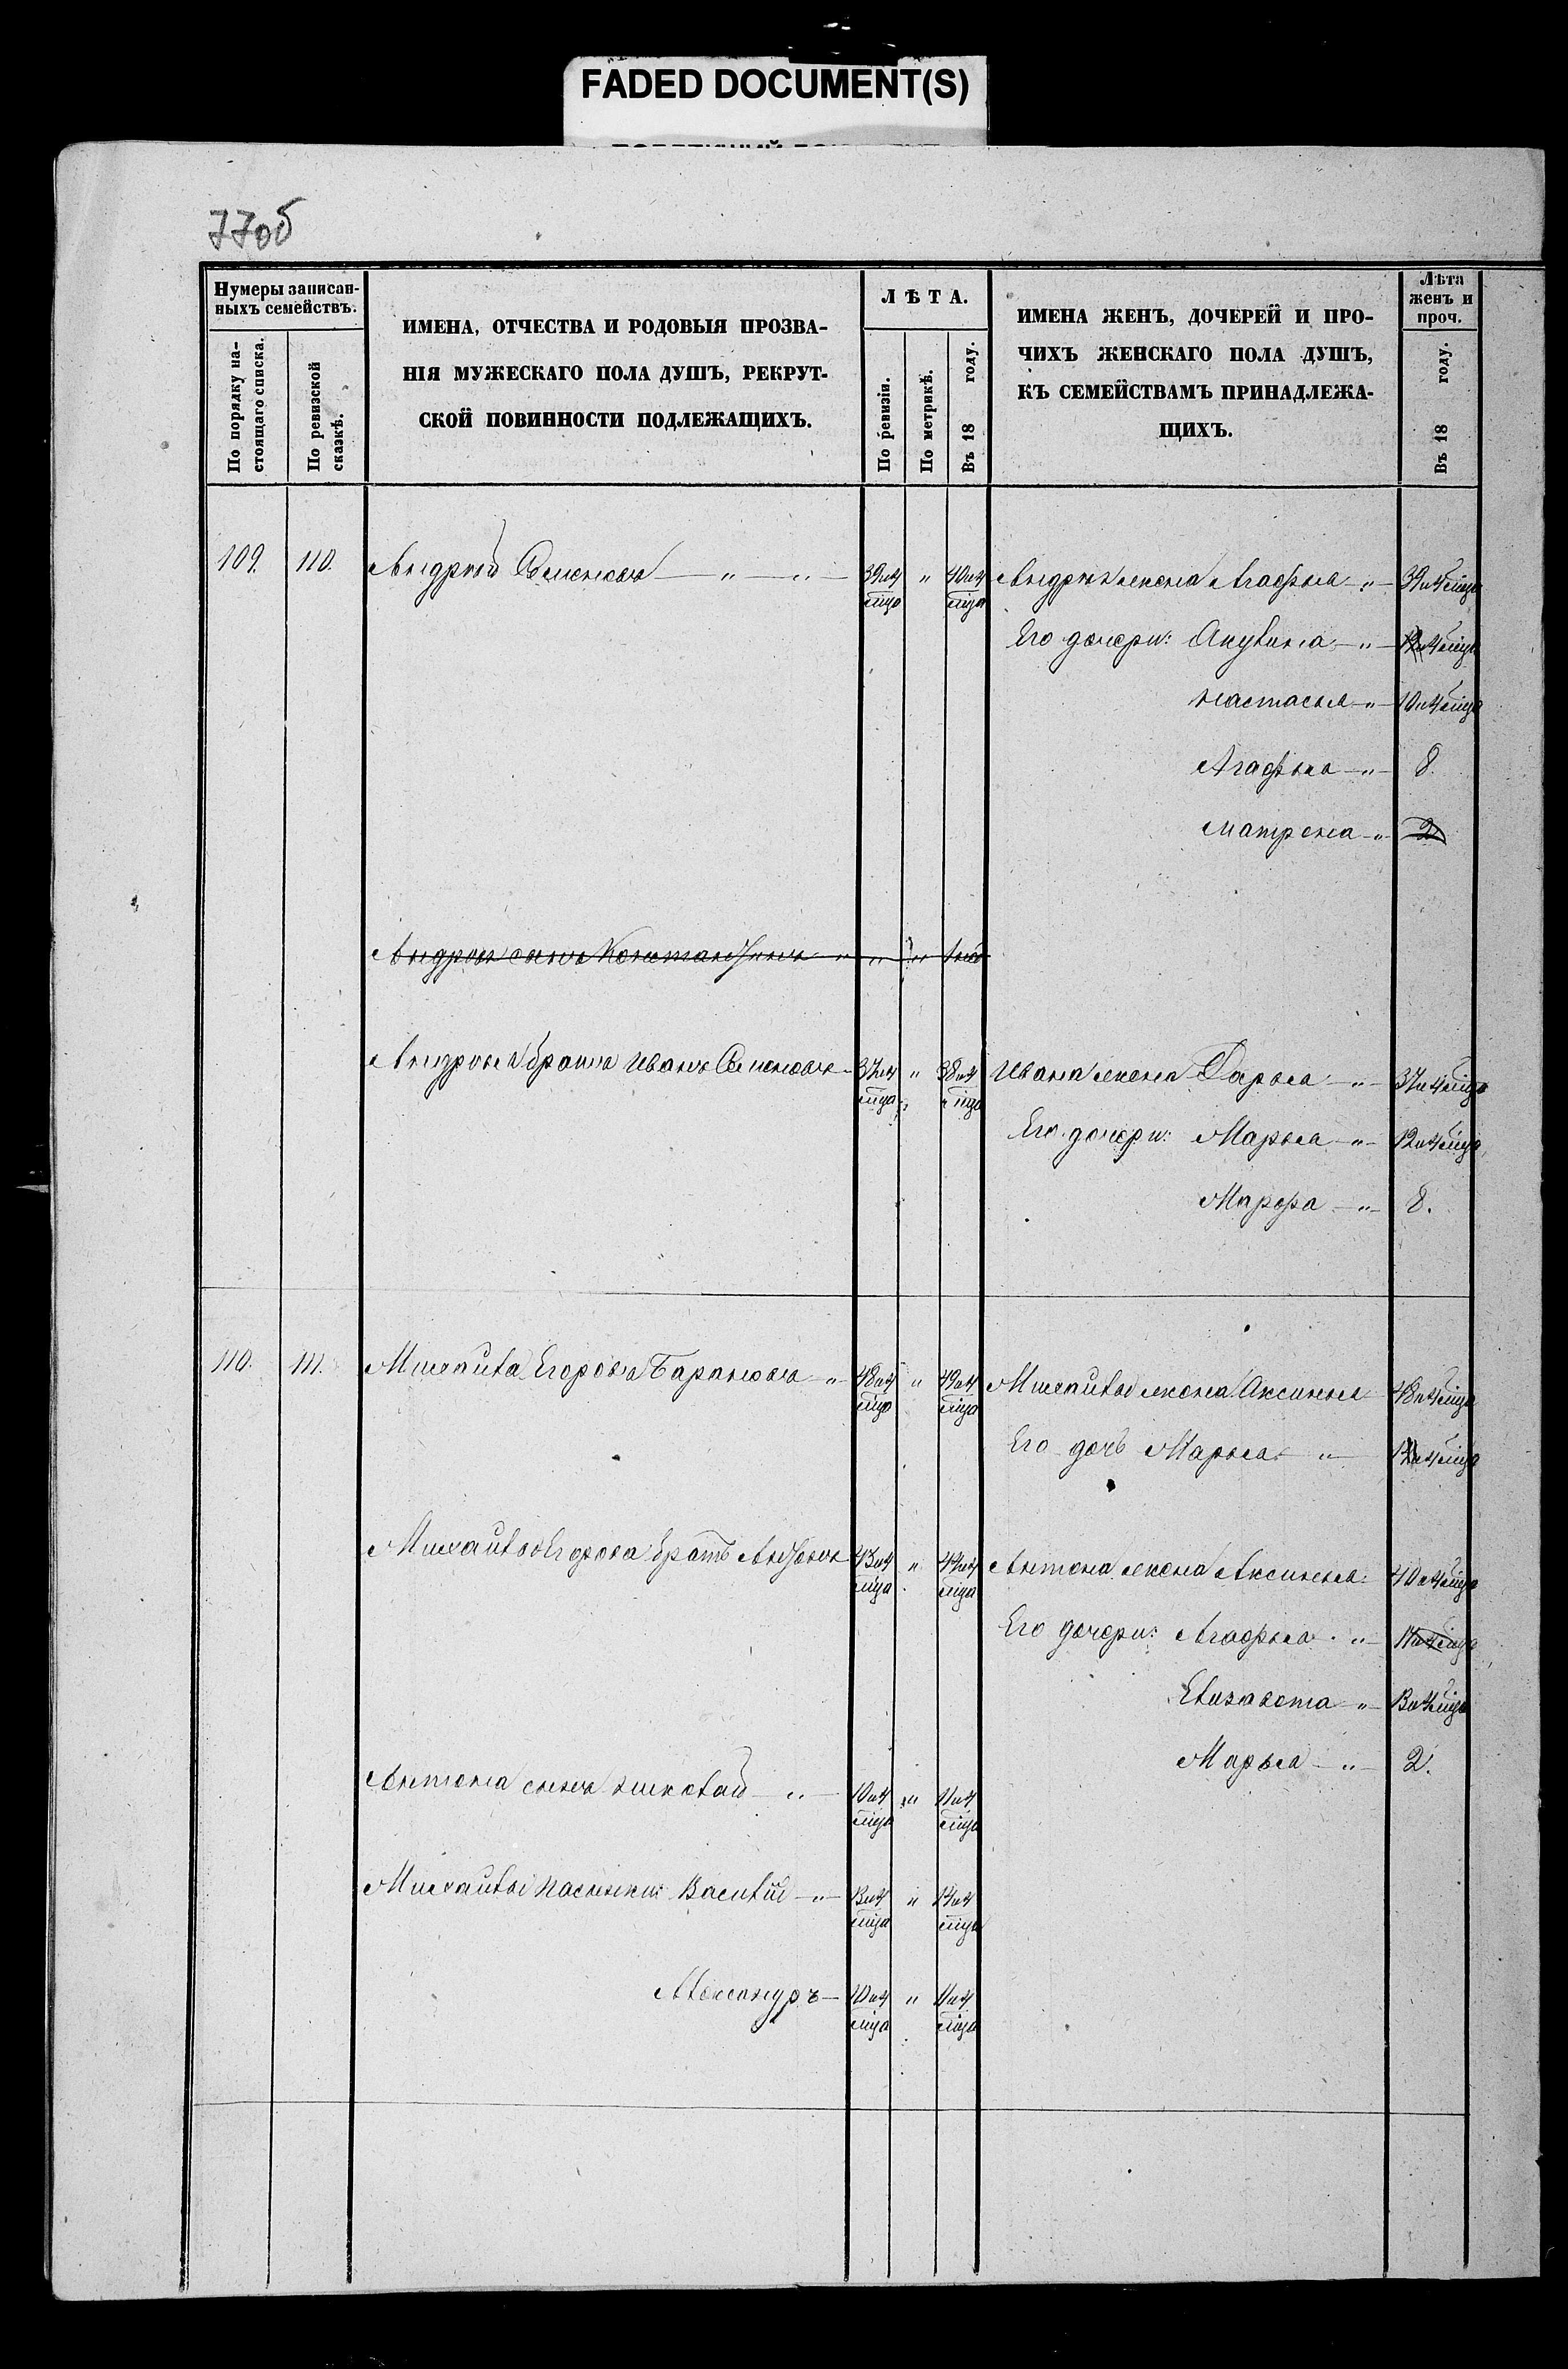 FADED DOCUMENT(S)
77об
Нумеры записан-
ныхъ семействъ.
По порядку на-
стоящаго списка.
По ревизской
сказкѣ.
ИМЕНА, ОТЧЕСТВА И РОДОВЫЯ ПРОЗВА-
НІЯ МУЖЕСКАГО ПОЛА ДУШЪ, РЕКРУТ-
СКОЙ ПОВИННОСТИ ПОДЛЕЖАЩИХЪ.
ЛѢТА.
По ревизіи.
По метрикѣ.
Въ 18 году.
ИМЕНА ЖЕНЪ, ДОЧЕРЕЙ И ПРО-
ЧИХЪ ЖЕНСКАГО ПОЛА ДУШЪ,
КЪ СЕМЕЙСТВАМЪ ПРИНАДЛЕЖА-
ЩИХЪ.
Лѣта
женъ и
проч.
Въ 18 году.
109. 110. Андрей Семеновъ — " — " — 39 и 4 мца " 40 и 4 мца Андрея жена Агафья — " — 39 и 4 мца
Его дочери: Акулина — " — 4 мца
Настасья — " — 10 и 4 мца
Агафья — " — 8.
Матрена — " 2
Андрея сынъ Константинъ " " "
Андрея братъ Иванъ Семеновъ — 37 и 4 мца " 38 и 4 мца Ивана жена Дарья — " — 37 и 4 мца
Его дочери: Марья — " — 12 и 4 мца
Марфа — " — 8.
110. 111. Михаила Егоровъ Барановъ — " 48 и 4 мца " 49 и 4 мца Михаилы жена Аксинья 48 и 4 мца
Его дочь Марья — " — 4 мца
Михаилы Егорова братъ Антонъ 43 и 4 мца " 44 и 4 мца Антона жена Аксинья 40 и 4 мца
Его дочери: Агафья — " — 4 мца
Елизавета — " — 13 и 4 мца
Марья — " — 2.
Антона сынъ Николай — " — 10 и 4 мца " 11 и 4 мца
Михаилы пасынки: Василій — " — 13 и 4 мца " 14 и 4 мца
Александръ — 10 и 4 мца " 11 и 4 мца